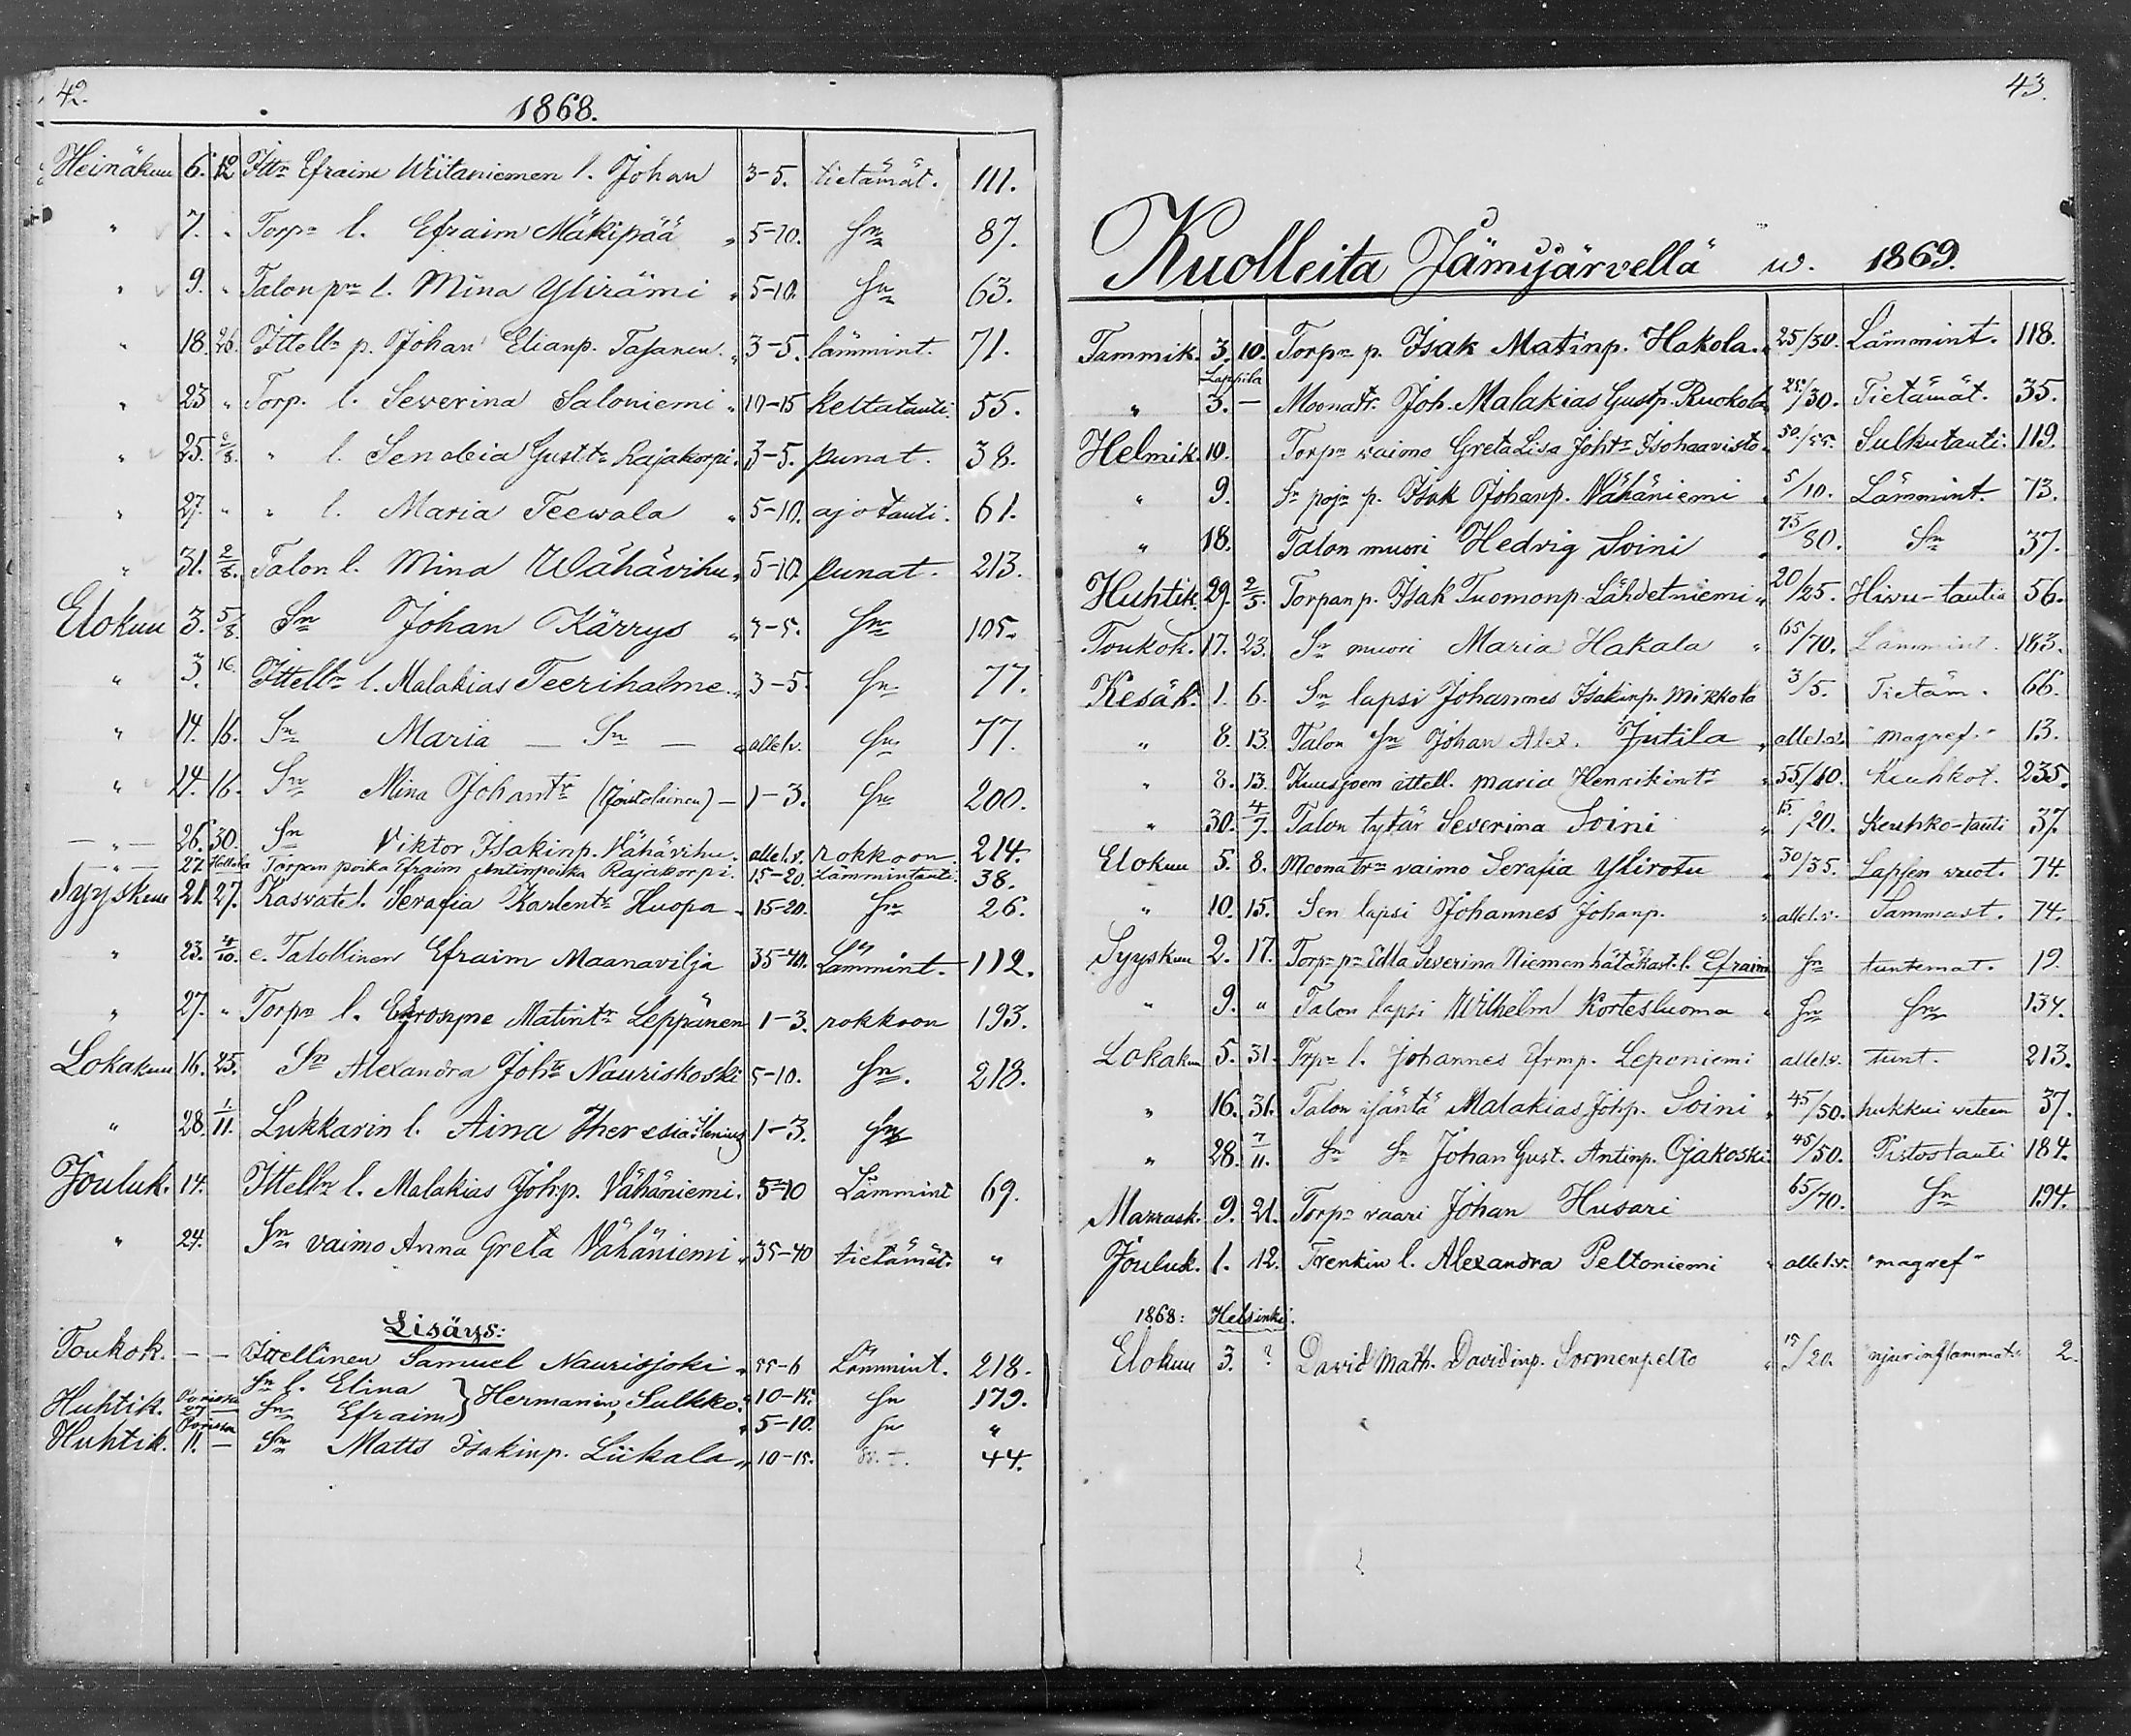 42.
1868.
Heinäkuu 6. 12 Ittn Efraim Wiitaniemen l. Johan 3-5. tietämät. 111.
" 7. " Torpn l. Efraim Mäkipää " 5-10. Sn 87.
" 9. " Talon pn l. Mina Ylirämi " 5-10. Sn 63.
" 18. 26. Ittelln p. Johan Elianp. Tajanen. " 3-5. lämmint. 71.
" 23 " Torp. l. Severina Saloniemi " 10-15 keltatauti. 55.
" 25. 2/8. " l. Senobia Gust.tr Rajakorpi. 3-5. punat. 38.
" 27. " " l. Maria Teewala " 5-10. ajotauti. 61.
" 31. 2/8. Talon l. Mina Wähävihu " 5-10. punat. 213.
Elokuu 3. 5/8. Sn Johan Kärrys " 3-5. Sn 105.
" 3. 16. Ittelln l. Malakias Teerihalme. " 3-5. Sn 77.
" 14. 16. Sn Maria — Sn — " alle1v. Sn 77.
" 14. 16. Sn Mina Johantr — 1-3. Sn 200.
— " — 26. 30. Sn Viktor Isakinp. Vähävihu. alle1.v. rokkoon. 214.
— " — 27. Torpan poika Efraim Antinpoika Rajakorpi. 15-20. Lämmintauti. 38.
Syyskuu 21. 27. Kasvatel. Serafia Karlentr Huopa " 15-20. Sn 26.
" 23. 4/10. e. Talollinen Efraim Maanavilja 35-40. Lämmint. 112.
" 27. " Torpn l. Matintr Leppänen 1-3. rokkoon 193.
Lokakuu 16. 25. Sn Alexandra Johtr Nauriskoski 5-10. Sn. 218.
" 28. 1/11. Lukkarin l. Aina Theresia 1-3. Sn
Jouluk. 14. Ittelln l. Malakias Joh.p. Vähäniemi. 5-10 Lämmint 69.
" 24. Sn vaimo Anna Greta Vähäniemi " 35-40 tietämät. "
Lisäys:
Toukok. — — Ittellinen Samuel Naurisjoki " 55-6 Lämmint. 218.
Huhtik. Sn l. Elina } Hermanin, Sulkko. " 10-15. Sn 179.
Sn Efraim " 5-10. Sn "
Huhtik. 11. — Sn Matts Isakinp. Liikala " 10-15. 44.
43.
Kuolleita Jämijärvellä w. 1869.
Tammik. 3. 10. Torpn p. Isak Matinp. Hakola. " 25/30. Lämmint. 118.
Lappila
" 3. — Moonatr. Joh. Malakias Gustp. Ruokola 25/30. Tietämät. 35.
Helmik. 10. Torpn vaimo Greta Lisa Johtr Isohaavisto " 50/55. Sulkutauti. 119.
" 9. Sn pojn p. Isak Johanp. Vähäniemi " 5/10. Lämmint. 73.
" 18. Talon muori Hedvig Soini " 75/80. Sn 37.
Huhtik. 29. 2/5. Torpan p. Isak Tuomonp. Lähdetniemi " 20/25. Hivu-tautia 56.
Toukok. 17. 23. Sn muori Maria Hakala " 65/70. Lämmint. 183.
Kesäk. 1. 6. Sn lapsi Johannes Isakinp. Mikkola 3/5. Tietäm. 66.
" 8. 13. Talon Sn Johan Alex. Jutila " alle1.v. "magref." 13.
" 8. 13. Kuusjoen ittell. Maria Henrikintr " 55/60. Keuhkot. 235.
" 30. 4/7. Talon tytär Severina Soini " 15/20. Keuhko-tauti 37.
Elokuu 5. 8. Moonatrn vaimo Serafia Ylirotu " 30/35. Lapsen vuot. 74.
" 10. 15. Sen lapsi Johannes Johanp. " alle1.v. Sammast. 74.
Syyskuu 2. 17. Torpn pn Edla Severina Niemen hätäkast. l. Efraim Sn tuntemat. 19.
" 9. " Talon lapsi Wilhelm Kortesluoma " Sn Sn 134.
Lokakuu 5. 31. Trpn l. Johannes Efrmp. Leponiemi alle1v. tunt. 213.
" 16. 31. Talon isäntä Malakias Johp. Soini " 45/50. hukkui veteen 37.
" 28. 7/11. Sn Sn Johan Gust. Antinp. Ojakoski. 45/50. Pistostauti 184.
Marrask. 9. 21. Torpn vaari Johan Husari 65/70. Sn 194.
Jouluk. 1. 12. Trenkin l. Alexandra Peltoniemi " alle1.v. "magref"
1868: Helsinki.
Elokuu 3. ? David Math. Davidinp. Sormenpelto " 15/20. "njurinflammat." 2.